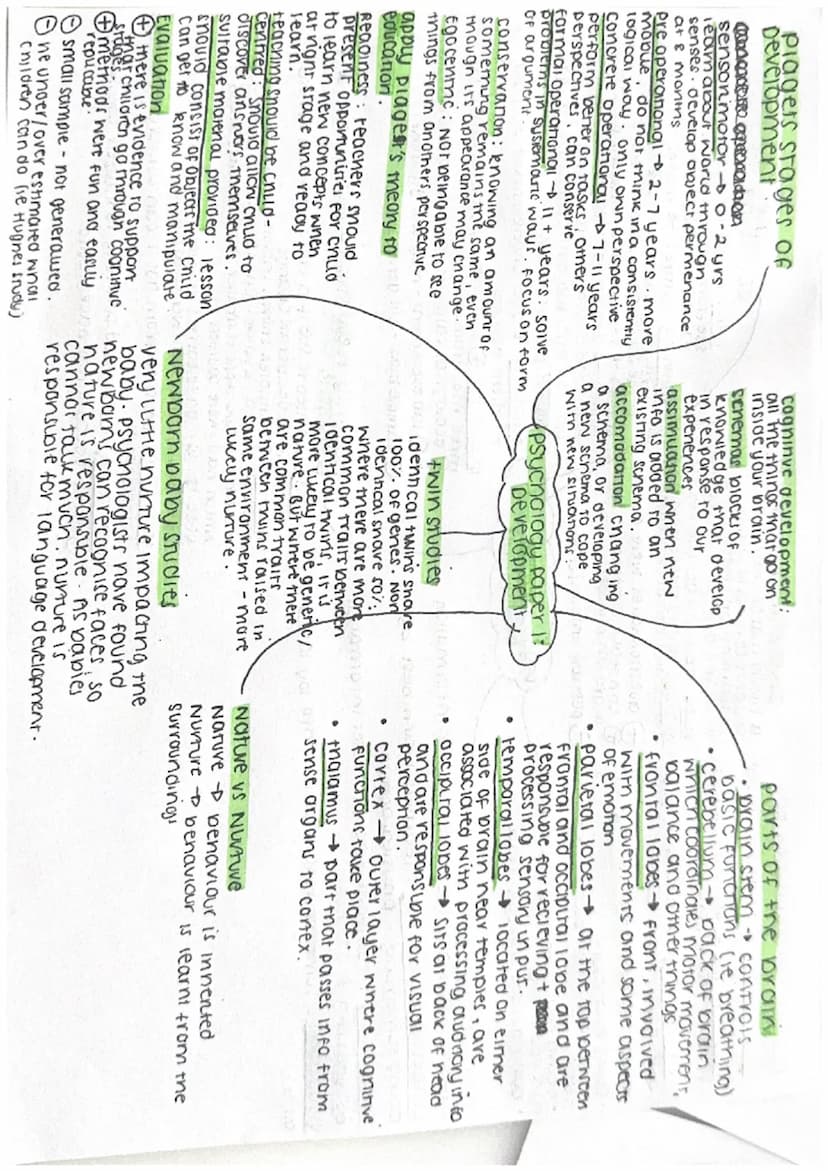 Piagets stages of
development.
sensorimotor → 0-2 yrs
learn about world through
senses. develop object permenance
at 8 months
pre operational → 2-7 years. more
mobile, do not think in a consistently
logical way. only own perspective
concrete operational → 7-11 years
perform better on tasks, others
perspectives, can conserve
formal operational → 11+ years. solve
problems in systematic ways. focus on form
of argument.
conservation: knowing an amount of
something remains the same, even
though its appearance may change.
egocentric: not being able to see
things from anothers perspective.
apply piaget's theory to
education.
Readiness: teachers should
present opportunities for child
to learn new concepts when
at right stage and ready to
learn.
teaching should be child-
centred. should allow child to
discover answers themselves.
suitable material provided: lesson
should consist of objects the child
can get to know and manipulate
evaluation
⊕ there is evidence to support
that children go through cognitive
stages.
⊕ methods were fun and easily
replicable.
⊖ small sample - not generalised.
⊖ he under/over estimated what
children can do (ie Hughes study)
cognitive development:
all the things that go on
inside your brain.
schemas blocks of
knowledge that develop
in response to our
experiences
assimilation when new
info is added to an
existing schema.
accomodation changing
a schema, or developing
a new schema to cope
with new situations.
psychology paper 1:
Development
twin studies
identical twins share
100% of genes. Non
identical share 50%.
where there are more
common traits between
identical twins it is
more likely to be genetic/
nature. But where there
are common traits
between twins raised in
same environment - more
likely nurture.
Newborn baby studies
very little nurture impacting the
baby. psychologists have found
newborns can recognise faces, so
nature is responsible. As babies
cannot talk much, nurture is
responsible for language development.
parts of the brain
• brain stem → controls
basic functions (ie breathing)
• cerebellum → back of brain
which coordinates motor movement,
balance and other things
• frontal lobes → front, involved
with movements and some aspects
of emotion
• parietal lobes → at the top between
frontal and occipital lobe and are
responsible for recieving +
processing sensory input.
• temporal lobes → located on either
side of brain near temples, are
associated with processing auditory info
• occipital lobes → sits at back of head
and are responsible for visual
perception.
• cortex → outer layer where cognitive
functions take place.
• thalamus → part that passes info from
sense organs to cortex.
Nature vs Nurture
Nature → behaviour is inherited
Nurture → behaviour is learnt from the
surroundings